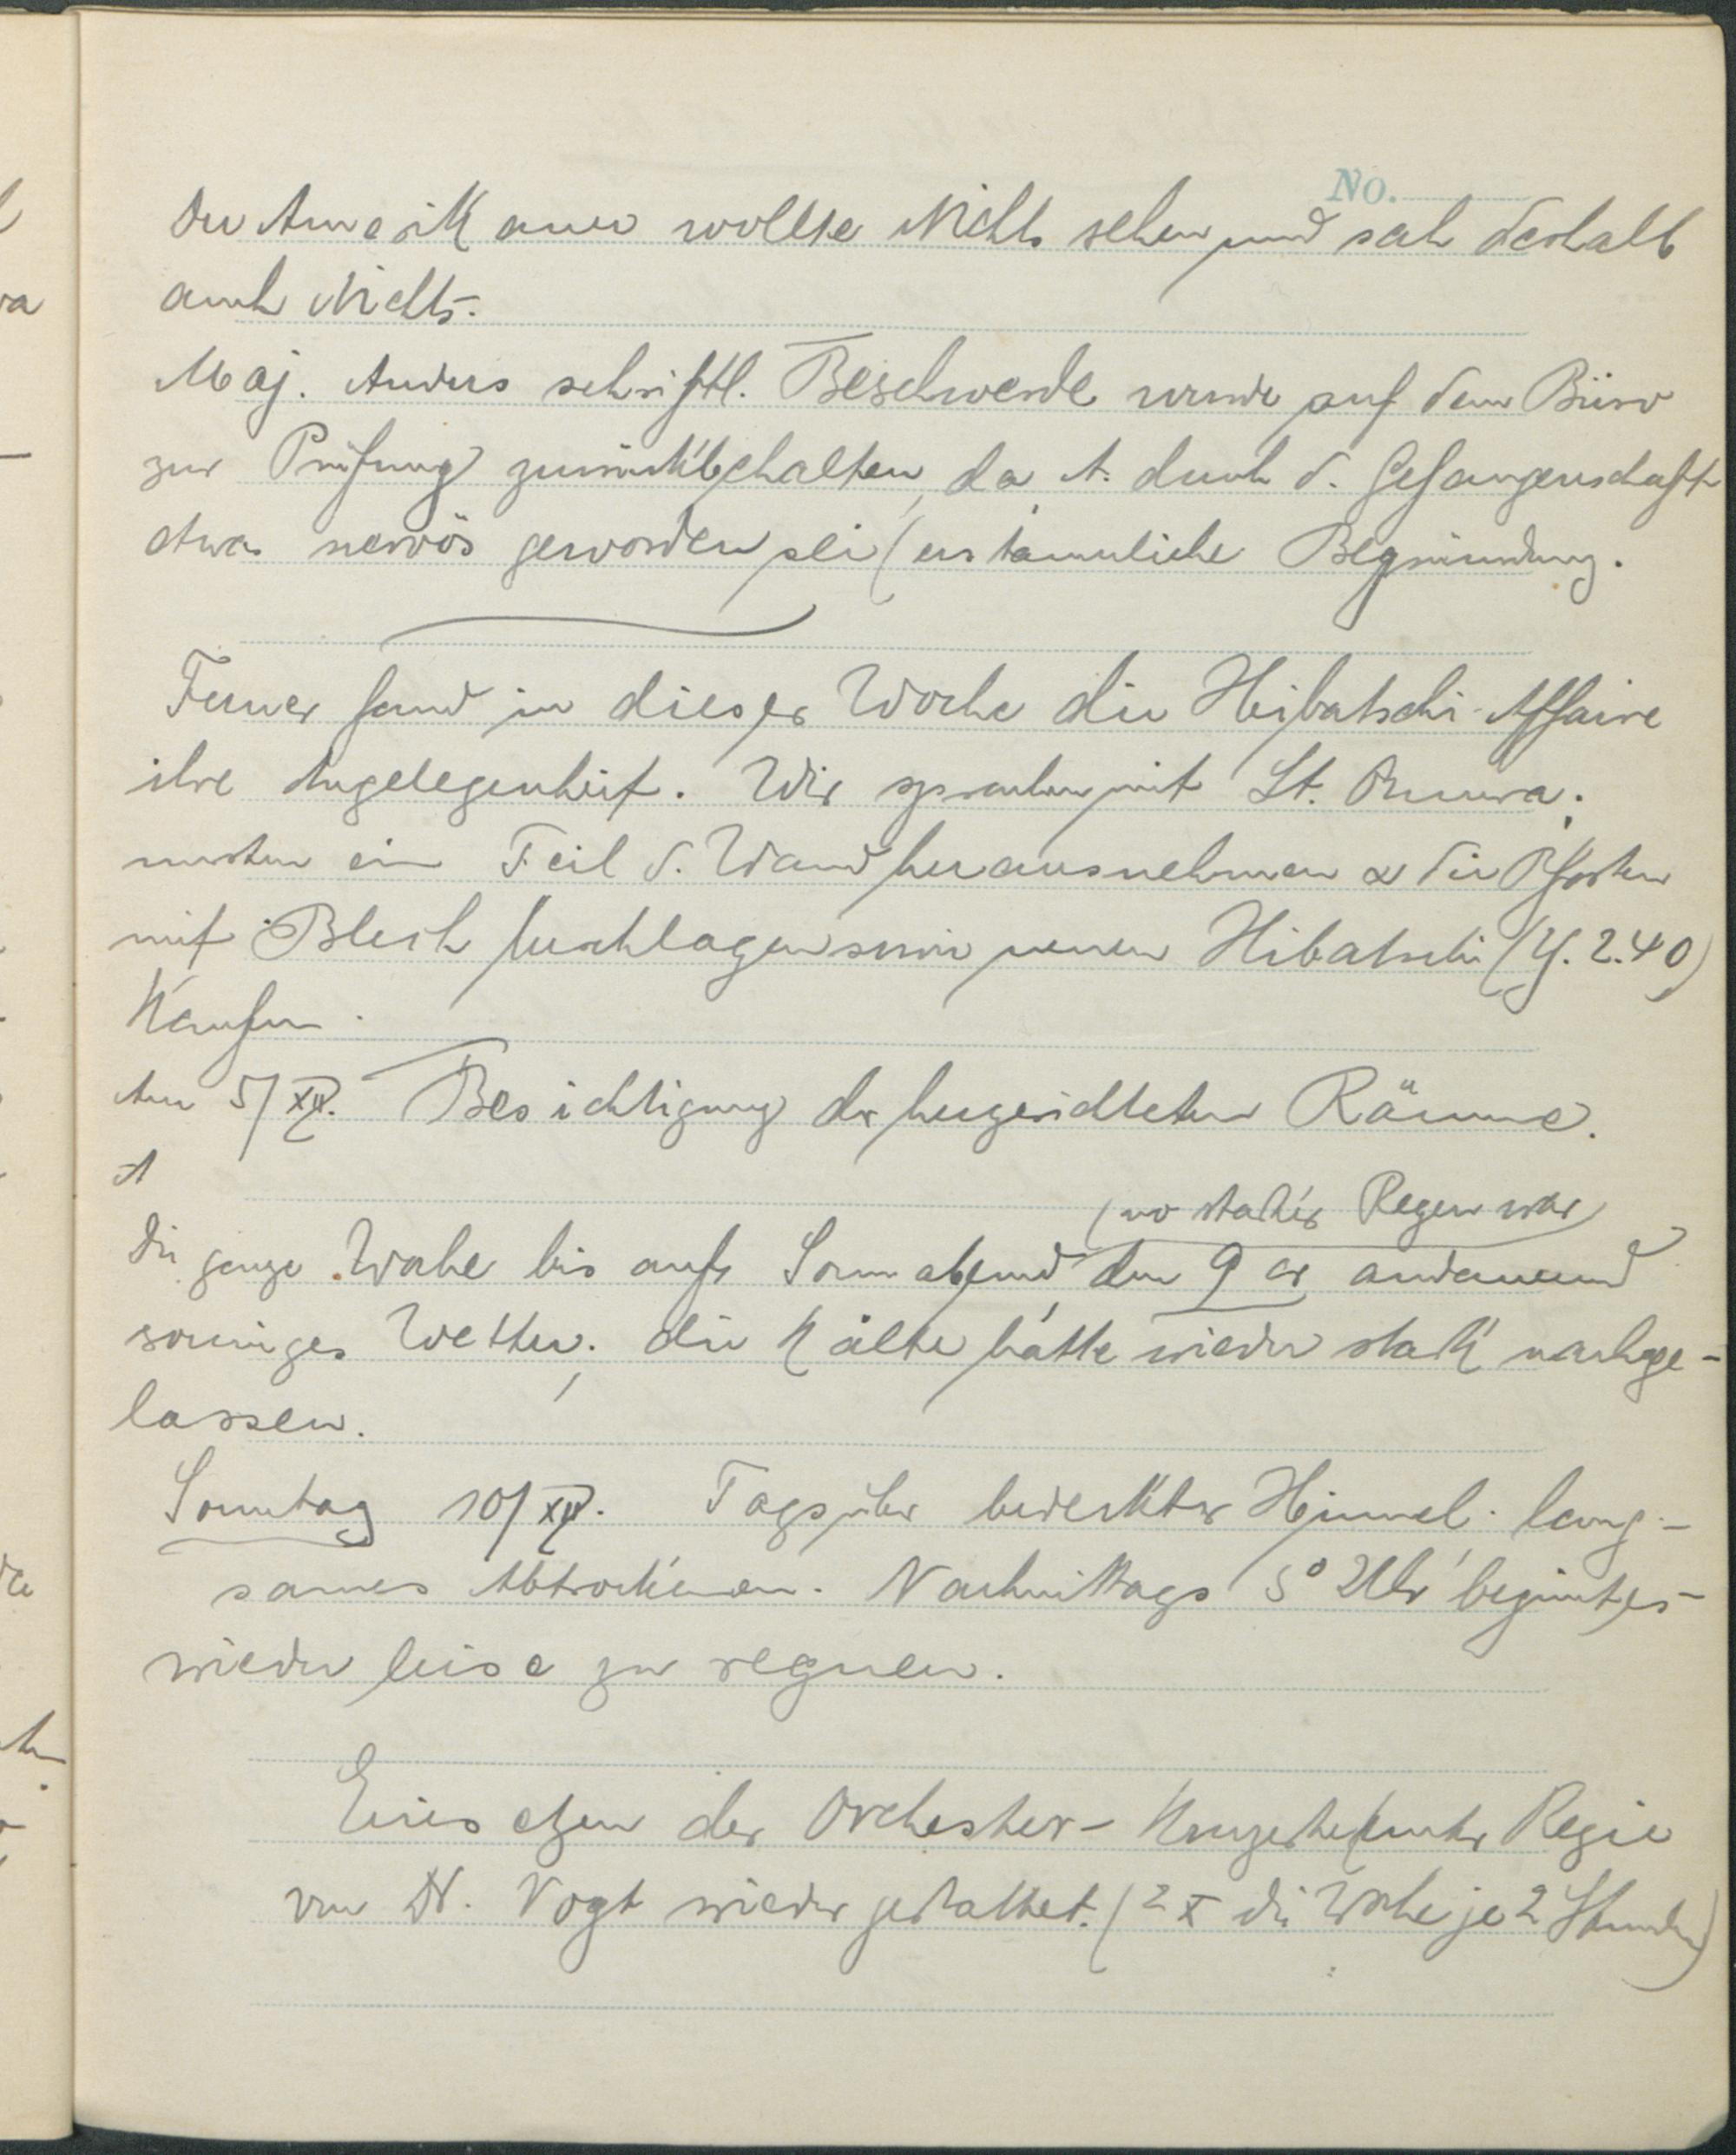 No.
Der Amerikaner wollte Nichts sehen und sah deshalb
auch Nichts.-
Maj. Anders schriftl. Beschwerde wurde auf dem Büro
zur Prüfung zurückbehalten, da A. durch d. Gefangenschaft
etwas nervös geworden sei (erstaunliche Begründung.
Ferner fand in dieser Woche die Hibatschi-Affaire
ihre Angelegenheit. Wir sprachen mit Lt.
mussten ein Teil d. Wand herausnehmen & die Pfosten
mit Blech beschlagen sowie neuen Hibatschi (Y. 2.40)
Kaufen.
Am 5/XII. Besichtigung der hergerichteten Räume.
A
(wo starker Regen war)
Die ganze Woche bis auf Sonnabend den 9 er andauernd
sonniges Wetter; die Kälte hatte wieder stark nachge-
lassen.
Sonntag 10/XII. Tagsüber bedeckter Himmel. lang-
sames Abtrocknen. Nachmittags 5° Uhr beginnt es
wieder leise zu regnen.
Einsetzen der Orchester-Konzerte unter Regie
von H. Vogt wieder gestattet. (2 x die Woche je 2 Stunden)